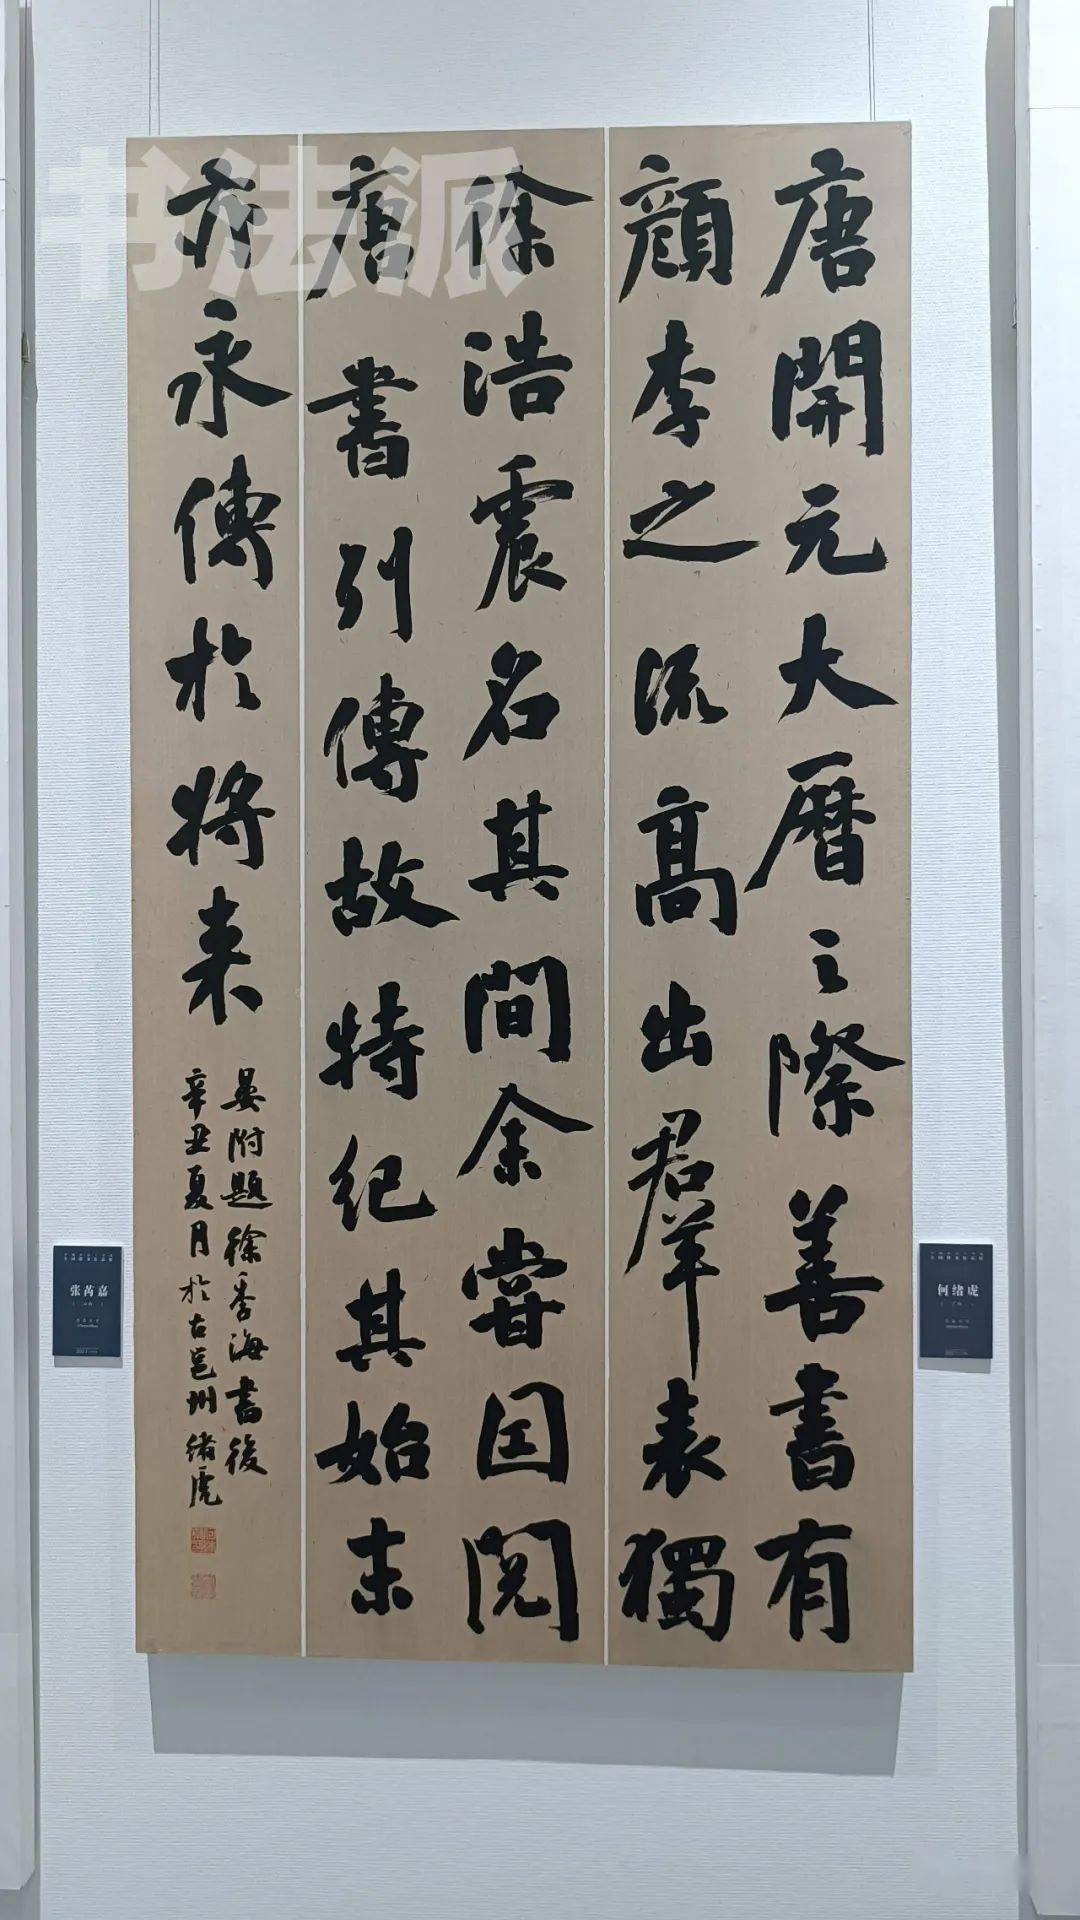 唐開元大曆之際善書有
顔李之流高出君羊表獨
徐浩震名其間余嘗因閲
唐書列傳故特紀其始末
永傳於将来
晏附題徐季海書後
辛丑夏月於古邕州緒虎
书法派
张芮嘉
何绪虎